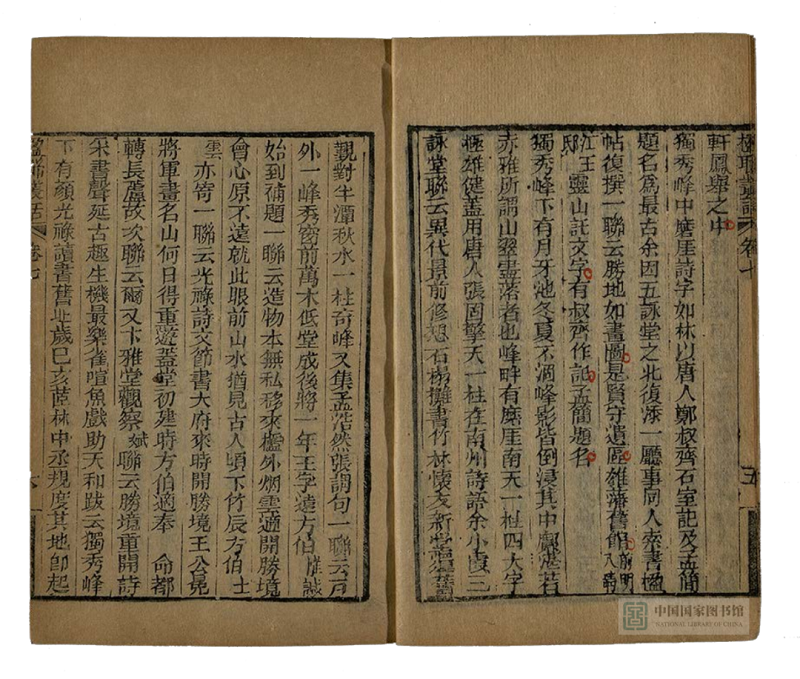 楹聯叢話 卷七 五
軒鳳舉之中
獨秀峰中磨厓詩字如林以唐人鄭叔齊石室記及孟簡
題名爲最古余因五詠堂之北復添一廳事同人索書楹
帖復撰一聯云勝地如畫圖是賢守遺區雄藩舊館前明
江王邸靈山託文字有叔齊作記孟簡題名
獨秀峰下有月牙池冬夏不涸峰影皆倒浸其中鄺湛若
赤雅所謂山翠盡落者也峰畔有磨厓南天一柱四大字
極雄健蓋用唐人張固擎天一柱在南州詩語余小霞三
詠堂聯云異代景前修想石榻攤書竹林懷友新堂還舊
觀對半潭秋水一柱奇峰又集孟浩然張謂句一聯云戶
外一峰秀窗前萬木低堂成後將一年王字遠方伯惟誠
始到補題一聯云造物本無私移來檻外烟雲適開勝境
會心原不遠就此眼前山水猶見古人頃卞竹辰方伯士
雲亦寄一聯云光祿詩文節書大府來時開勝境王公
將軍畫名山何日得重遊蓋堂初建時方伯適奉 命都
轉長蘆故次聯云爾又卞雅堂觀察斌聯云勝境重開詩
宋書聲延古趣生機最樂雀喧魚戲助天和跋云獨秀峰
下有顏光祿讀書舊址歲己亥茝林中丞規度其地卽起
楹聯叢話 卷七 六
中国国家图书馆
NATIONAL LIBRARY OF CHINA